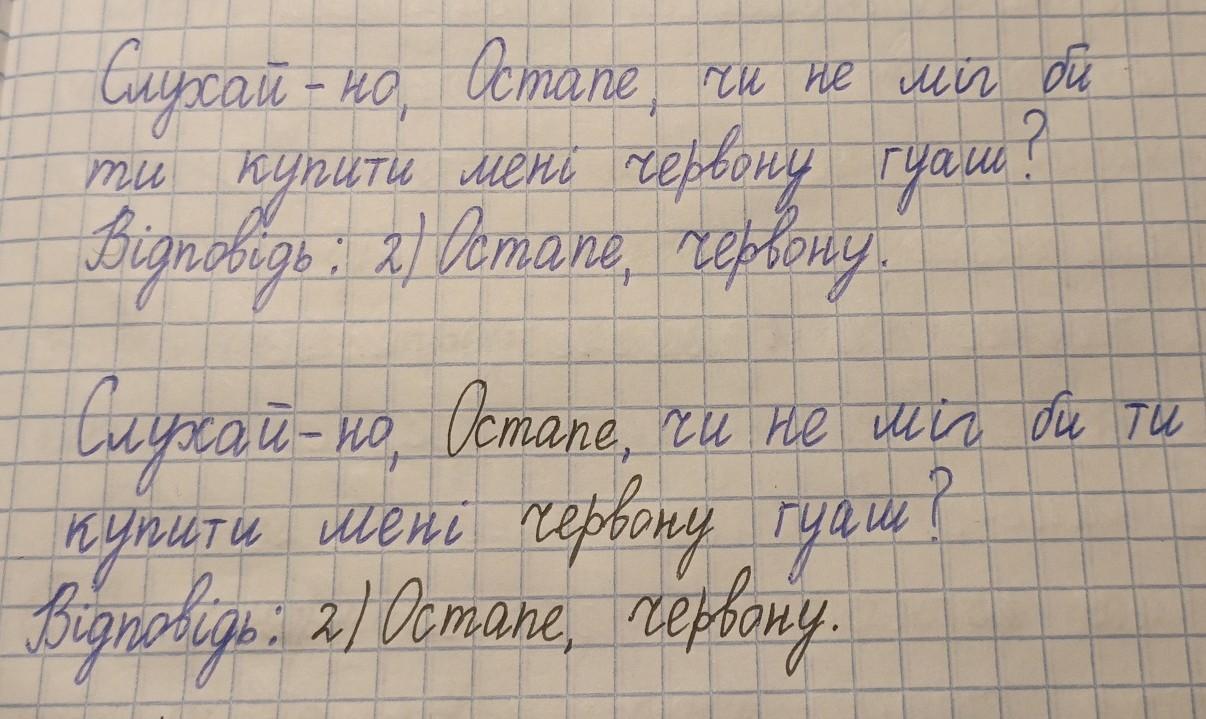 Слухай-но, Остапе, чи не міг би
ти купити мені червону гуаш?
Відповідь: 2) Остапе, червону.
Слухай-но, Остапе, чи не міг би ти
купити мені червону гуаш?
Відповідь: 2) Остапе, червону.